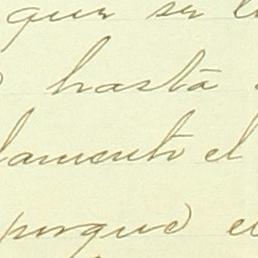 que se
hasta
lamente el
porque e